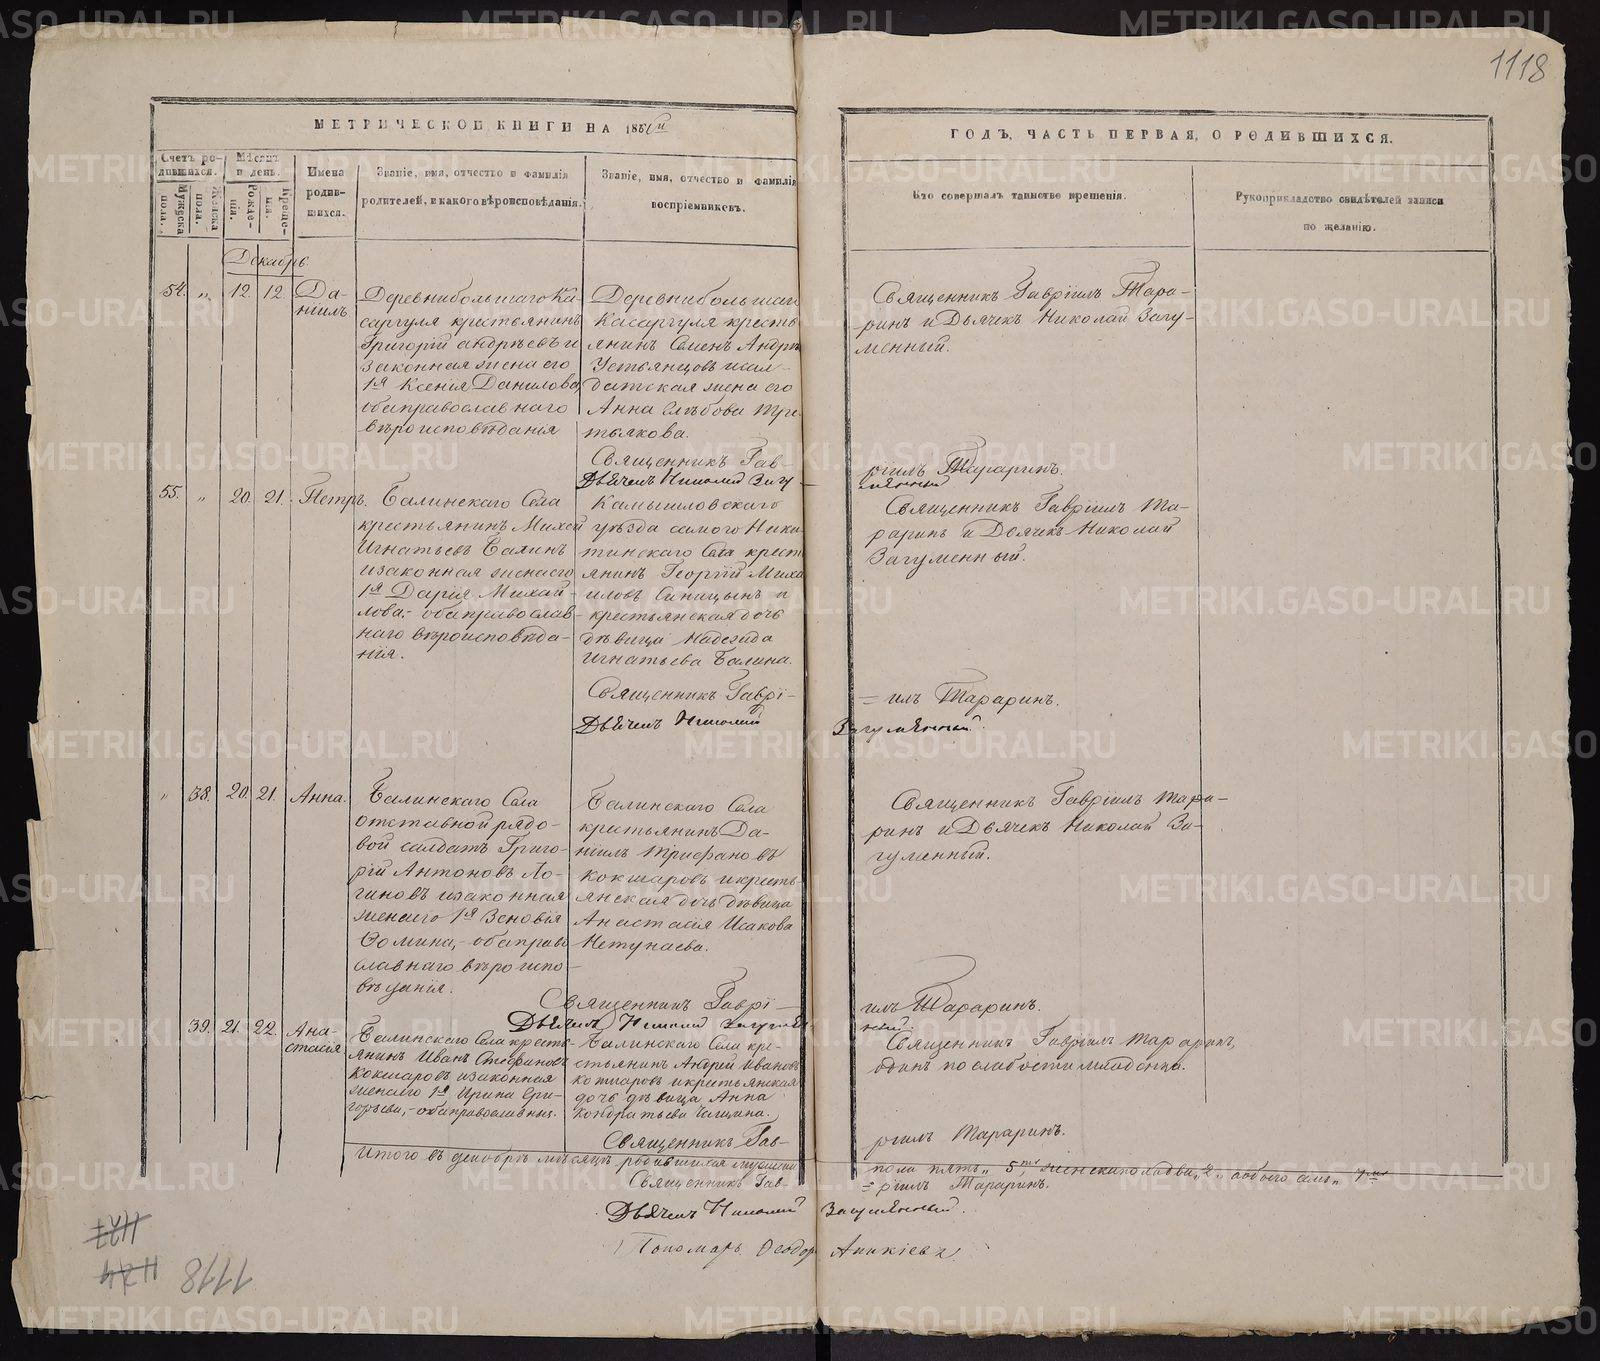 1118
МЕТРИЧЕСКОЙ КНИГИ НА 1856й
ГОДЪ, ЧАСТЬ ПЕРВАЯ, О РОДИВШИХСЯ.
Счетъ ро-
дившихся.
Мужеска
пола.
Женска
пола.
Мѣсяцъ
и день.
Рожде-
нія.
Креще-
нія.
Имена
родив-
шихся.
Званіе, имя, отчество и фамилія
родителей, и какого вѣроисповѣданія.
Званіе, имя, отчество и фамилія
воспріемниковъ.
Кто совершалъ таинство крещенія.
Рукоприкладство свидѣтелей записи
по желанію.
Декабрь
54. „ 12. 12. Да-
ніилъ
Деревни большаго Ка-
саргуля крестьянинъ
Григорій Андрѣевъ и
законная жена его
1я Ксенія Данилова,
оба православнаго
вѣроисповѣданія
Деревни большаго
Касаргуля кресть
янинъ Семенъ Андрѣ
Устьянцовъ и сол-
датская жена его
Анна Глѣбова Тре-
тьякова.
Священникъ Гавріилъ Тара-
ринъ и Дьячекъ Николай Загу-
менный.
Священникъ Гав-
ріилъ Тараринъ.
Дьячекъ Николай Загу-
мѣнный
55. „ 20. 21. Петръ.
Балинскаго Села
крестьянинъ Михей
Игнатьевъ Балинъ
и законная жена его
1я Дарія Михай-
лова, оба православ-
наго вѣроисповѣда-
нія.
Камышловскаго
уѣзда самого Ники-
тинскаго Села крест
янинъ Георгій Миха
иловъ Синицынъ и
крестьянская дочь
дѣвица Надежда
Игнатьева Балина.
Священникъ Гавріилъ Та-
раринъ и Дьячекъ Николай
Загуменный.
Священникъ Гаврі-
= илъ Тараринъ.
Дьячекъ Николай
Загумѣнный.
„ 38. 20. 21. Анна.
Балинскаго Села
отставной рядо-
вой солдатъ Григо-
рій Антоновъ Ло-
гиновъ и законная
жена его 1я Зеновія
Фомина, оба право
славнаго вѣроиспо-
вѣданія.
Балинскаго Села
крестьянинъ Да-
ніилъ Трифановъ
Кокшаровъ и кресть-
янская дочь дѣвица
Анастасія Исакова
Нетунаева.
Священникъ Гавріилъ Тара-
ринъ и Дьячекъ Николай За-
гуменный.
Священникъ Гаврі-
илъ Тараринъ.
Дьячекъ Николай Загумѣн
ный.
39. 21. 22. Ана-
стасія
Балинскаго Села кресть-
янинъ Иванъ Стефановъ
Кокшаровъ и законная
жена его 1я Ирина Гри-
горьева, оба православныя.
Балинскаго Села кре-
стьянинъ Андрей Ивановъ
Кокшаровъ и крестьянская
дочь дѣвица Анна
Кондратьева
Священникъ Гавріилъ Тараринъ,
одинъ по слабости младенца.
Священникъ Гав-
ріилъ Тараринъ.
Итого въ декабрѣ мѣсяцѣ родившихся мужеска
пола пять „ 5ть женска пола два „ 2 „ обоего семь „ 7мь
Священникъ Гав-
= ріилъ Тараринъ.
Дьячекъ Николай Загумѣнный.
Пономарь Феодоръ Аникіевъ
1118